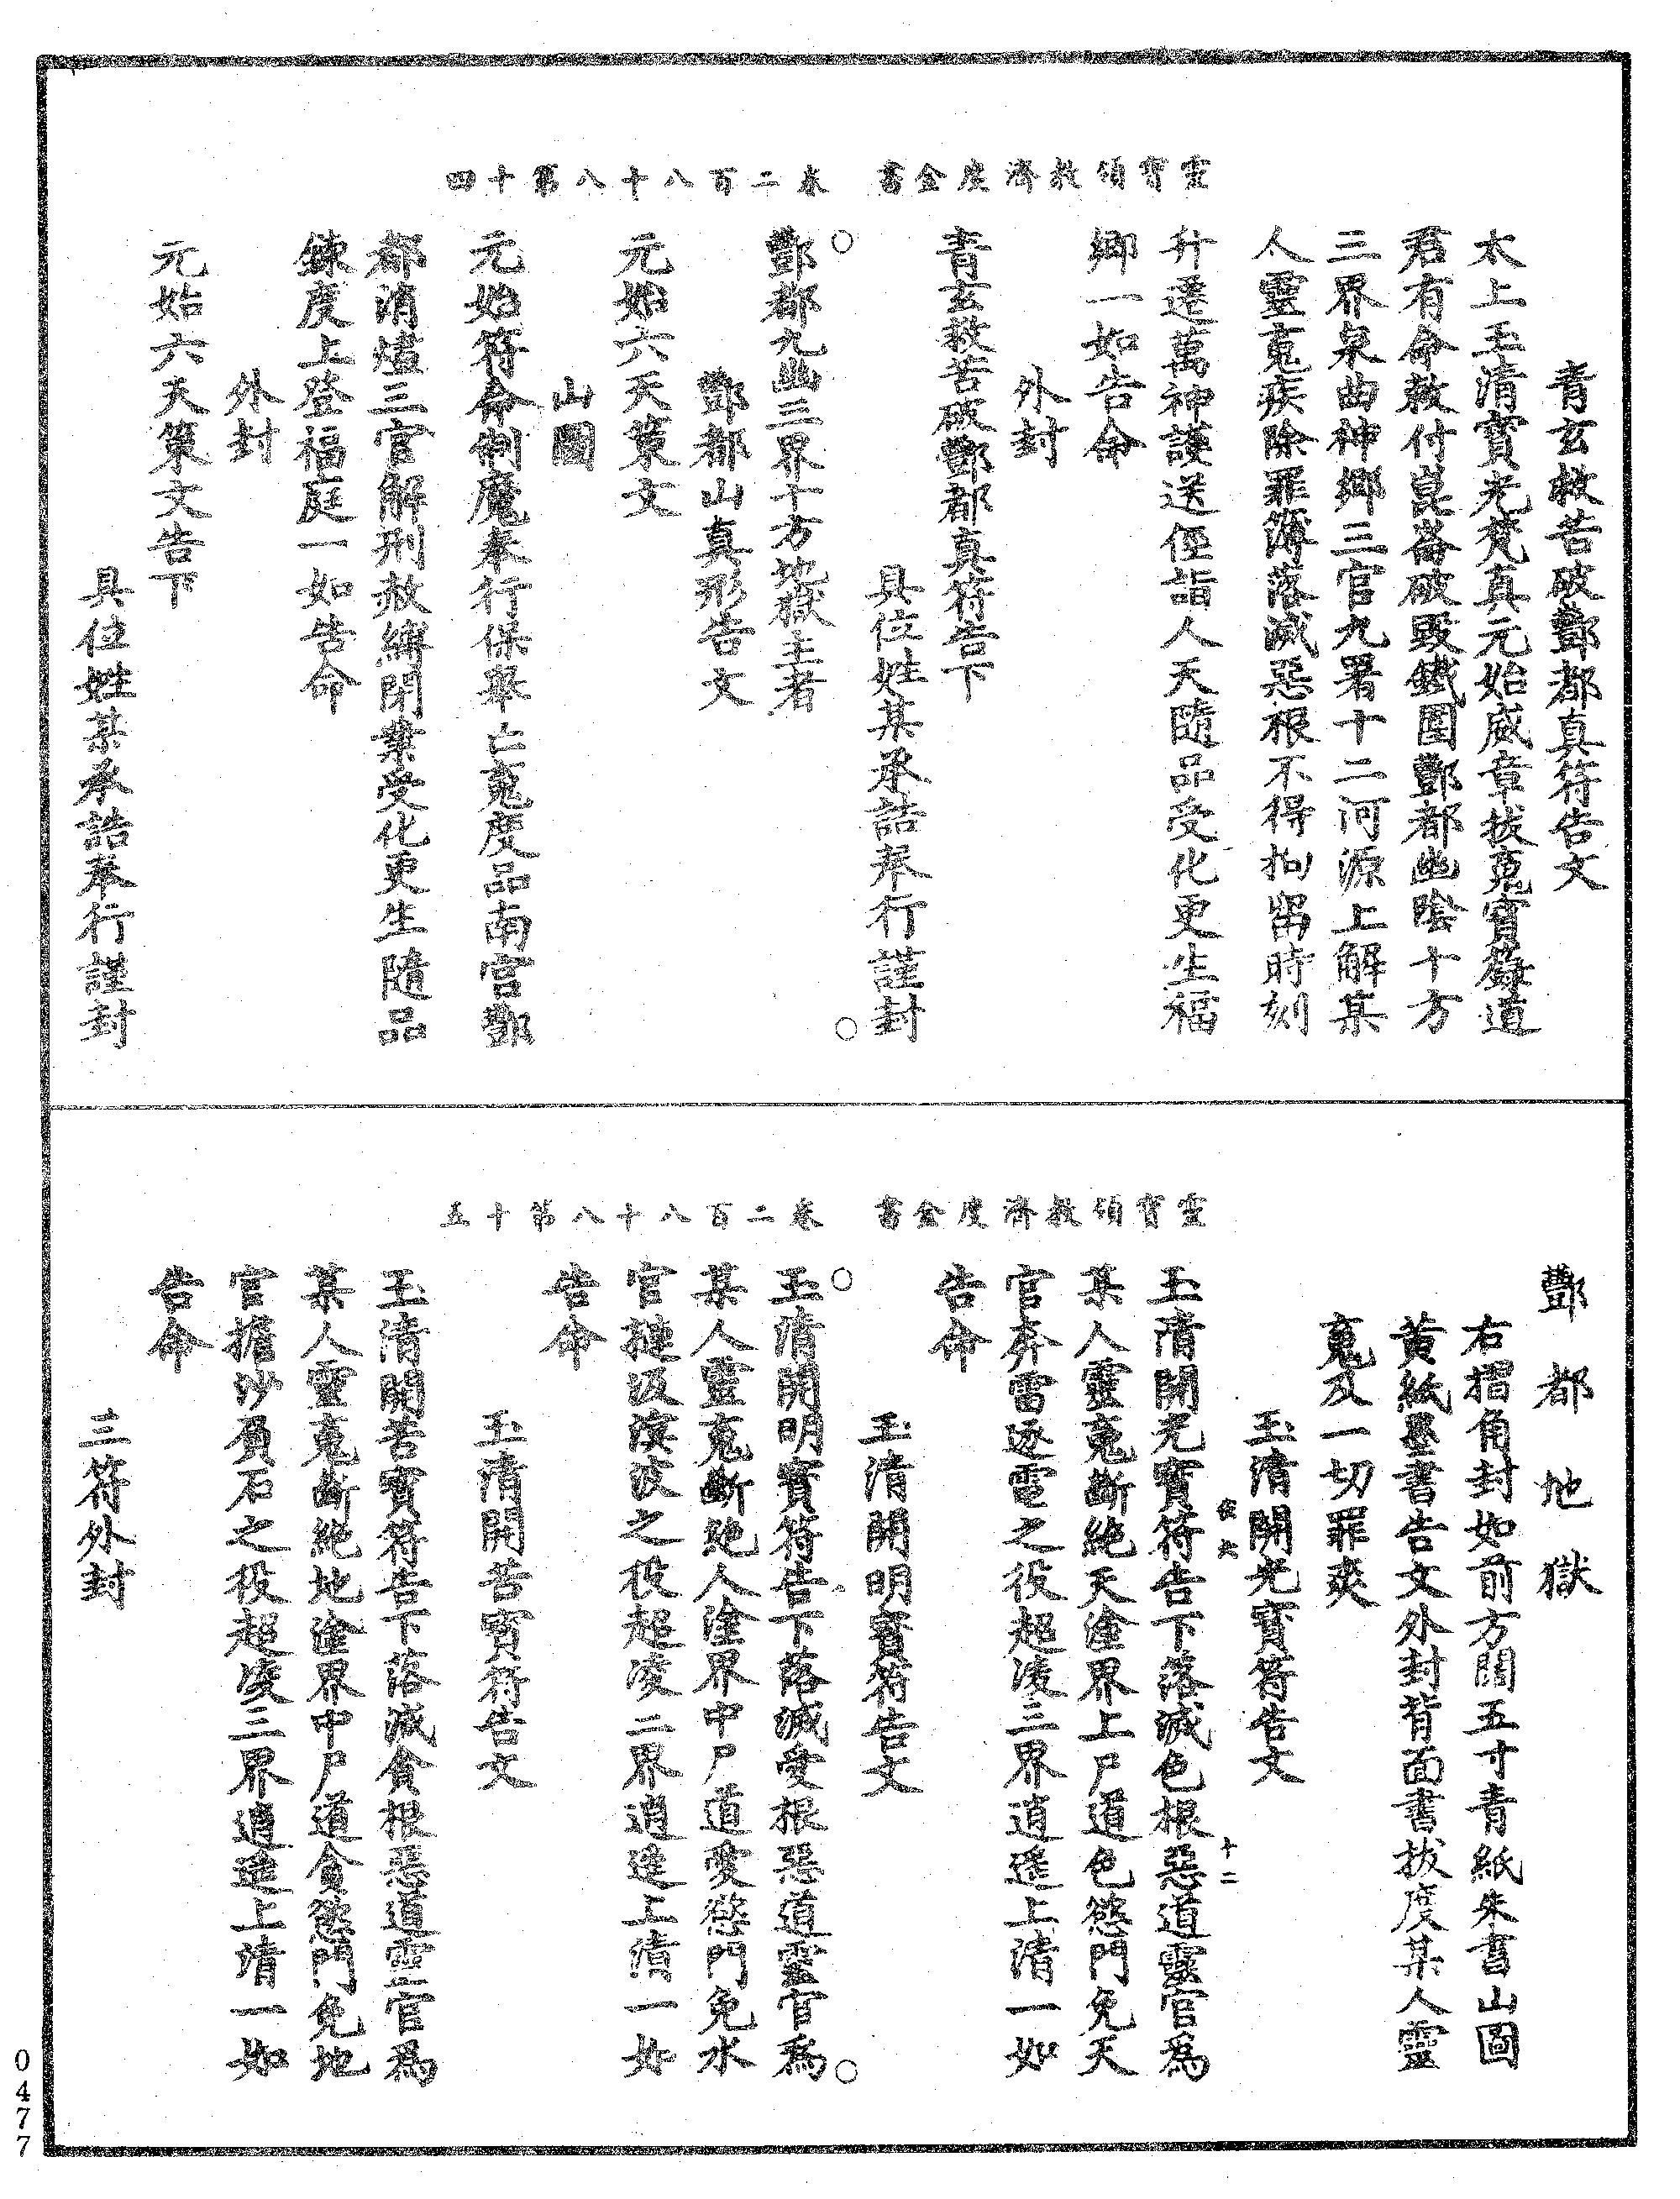 靈寶領教濟度金書　卷二百八十八第十四
青玄救苦破酆都真符告文
太上玉清寳光梵真元始威章拔䰟寳籙道
君有命敕付崑崙破毀鐵圍酆都幽陰十方
三界泉曲神鄉三官九署十二河源上解某
人靈䰟疾除罪簿落滅惡根不得拘留時刻
升遷萬神護送徑詣人天隨品受化更生福
鄉一如告命
外封
青玄救苦破酆都真符告下
具位姓某承誥奉行謹封
酆都九幽三界十方地獄主者
酆都山真形告文
元始六天策文
山圖
元始符命制魔奉行保舉亡䰟度品南宮酆
都消燼三官解刑赦縛閉業受化更生隨品
鍊度上登福庭一如告命
外封
元始六天策文告下
具位姓某承誥奉行謹封
靈寶領教濟度金書　卷二百八十八第十五
酆都地獄
右摺角封如前方闊五寸青紙朱書山圖
黄紙墨書告文外封背面書拔度某人靈
䰟及一切罪爽
玉清開光寳符告文
十二
玉清開光寳符告下落滅色根惡道靈官為
某人靈䰟斷絶天塗界上尸道色慾門免天
官奔雷逐電之役超凌三界逍遥上清一如
告命
玉清開明寳符告文
玉清開明寳符告下落滅愛根惡道靈官為
某人靈䰟斷絶人塗界中尸道愛慾門免水
官揵汲溟波之役超凌二界逍遥上清一如
告命
玉清開苦寳符告文
玉清開苦寳符告下落滅貪根惡道靈官為
某人靈䰟斷絶地塗界中尸道貪慾門免地
官擔沙負石之役超凌三界逍遥上清一如
告命
三符外封
0477